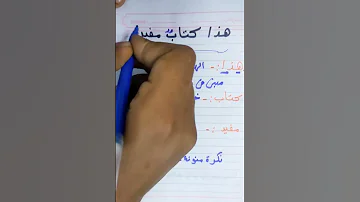 هذا كتابٌ مفيد
هذا :-
مبني
كتاب :-
مفيد :-
نكرة منونة